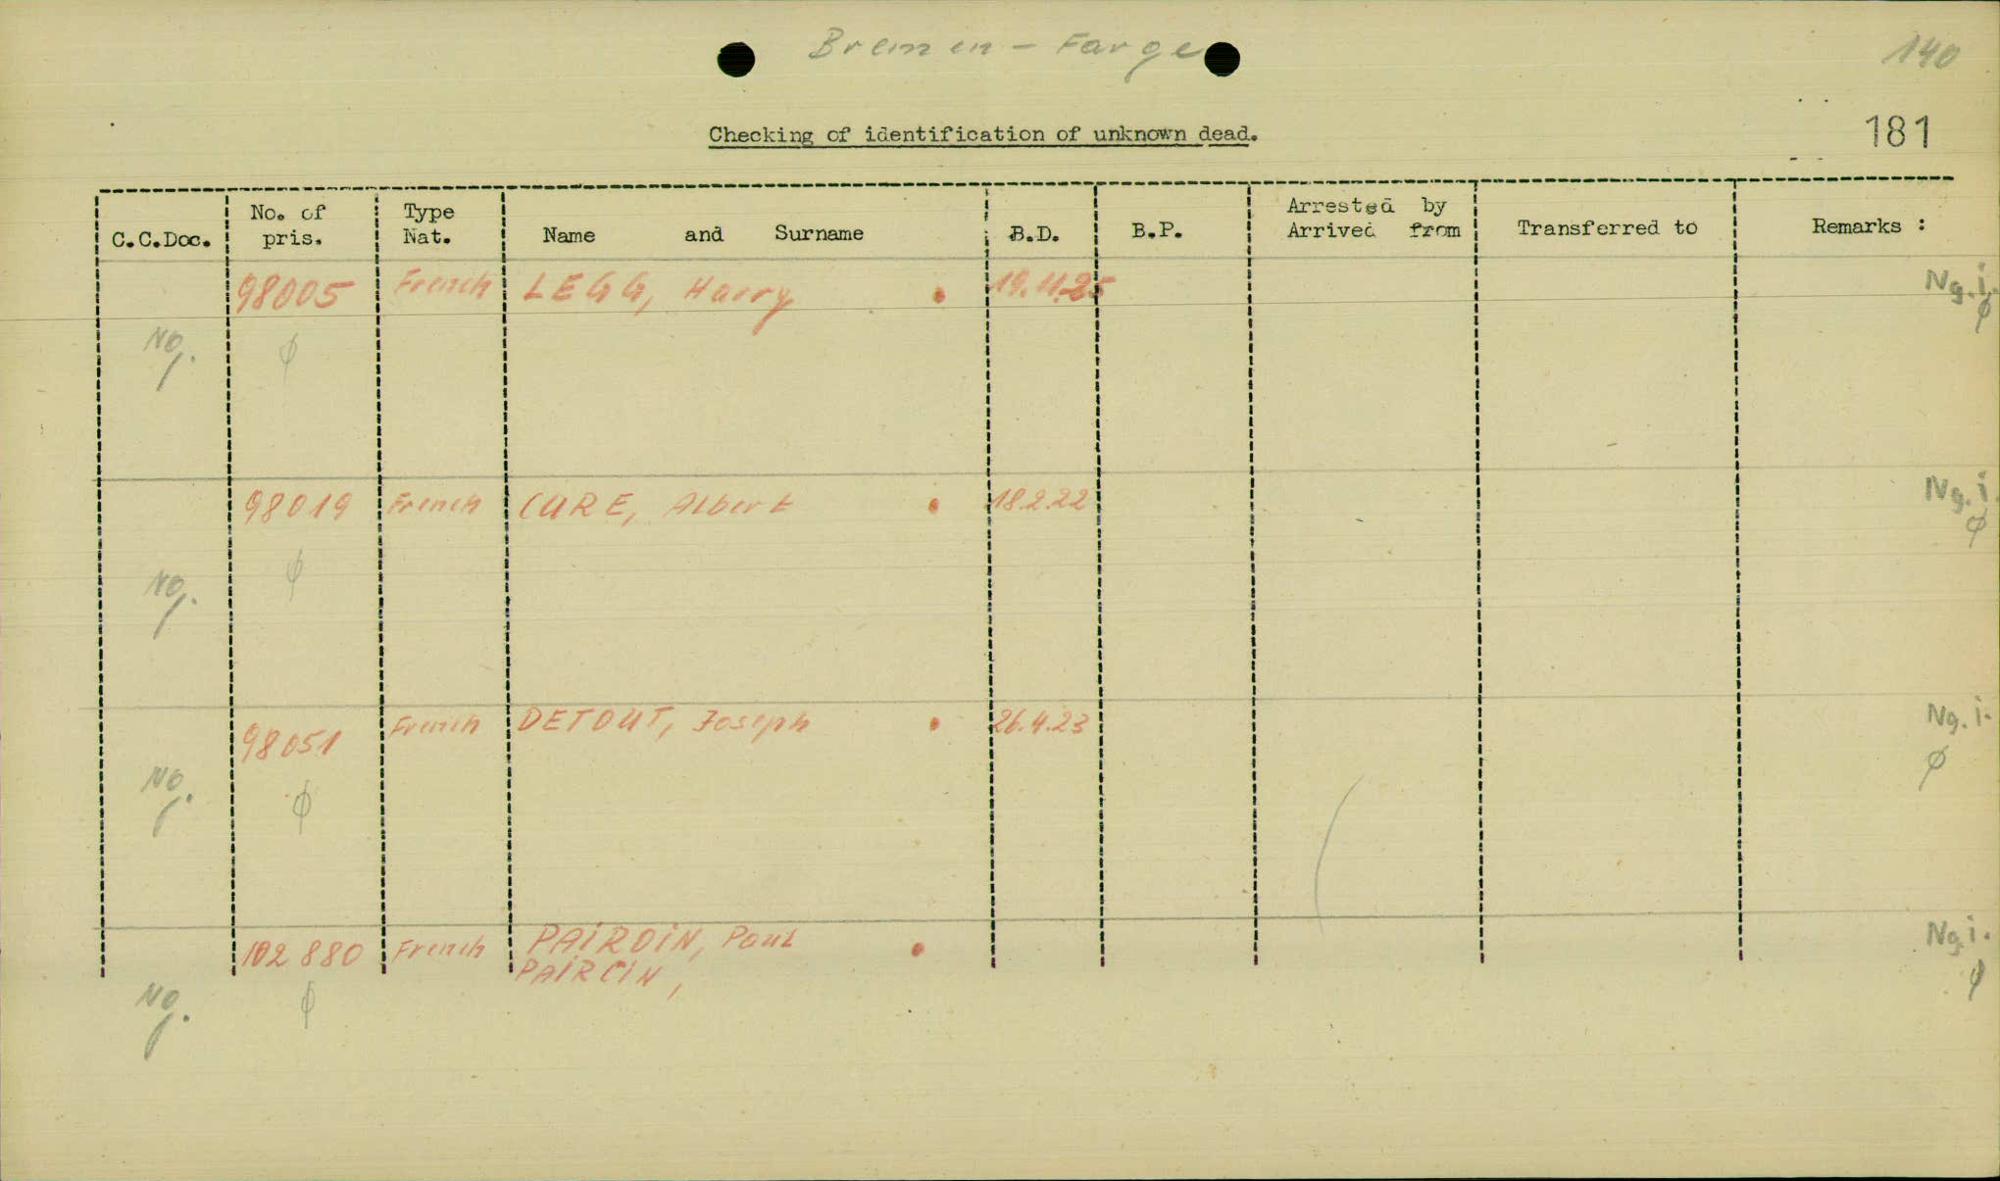 Bremen - Farge
140
Checking of identification of unknown dead.
181
C.C.Doc. No. of pris. Type Nat. Name and Surname B.D. B.P. Arrested by Arrived from Transferred to Remarks :
98005 French LEGG, Harry 19.11.25 Ng.i.
No. ϕ ϕ
98019 French CURE, Albert 18.2.22 Ng.i.
No. ϕ ϕ
98051 French DETOUT, Joseph 26.4.23 Ng.i.
No. ϕ ϕ
102880 French PAIRDIN, Paul Ng.i.
PAIRCIN,
No. ϕ ϕ